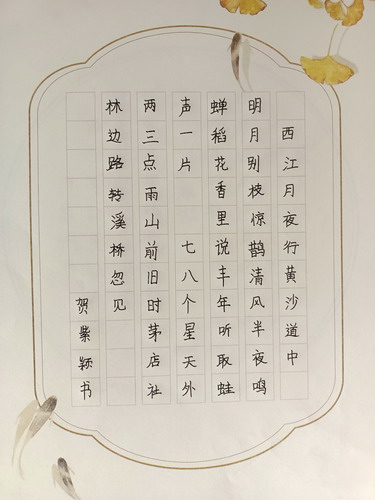 西江月夜行黄沙道中
明月别枝惊鹊清风半夜鸣
蝉稻花香里说丰年听取蛙
声一片 七八个星天外
两三点雨山前旧时茅店社
林边路转溪桥忽见
贺紫颖书